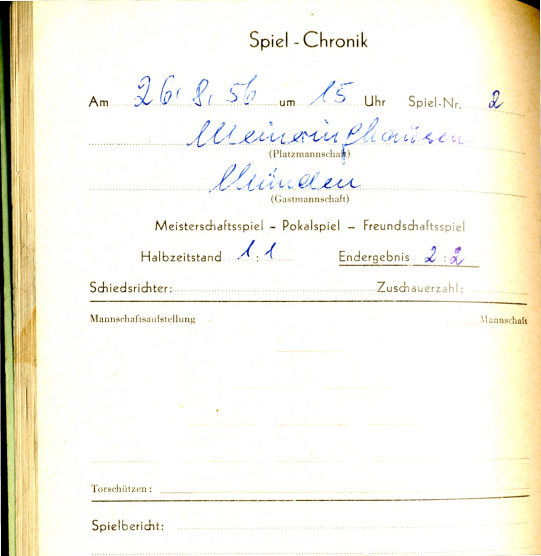 Spiel - Chronik
Am 26. 8. 56 um 15 Uhr Spiel-Nr. 2
Meineringhausen
(Platzmannschaft)
Münden
(Gastmannschaft)
Meisterschaftsspiel – Pokalspiel – Freundschaftsspiel
Halbzeitstand 1 : 1 Endergebnis 2 : 2
Schiedsrichter: Zuschauerzahl:
Mannschaftsaufstellung Mannschaft
Torschützen:
Spielbericht: